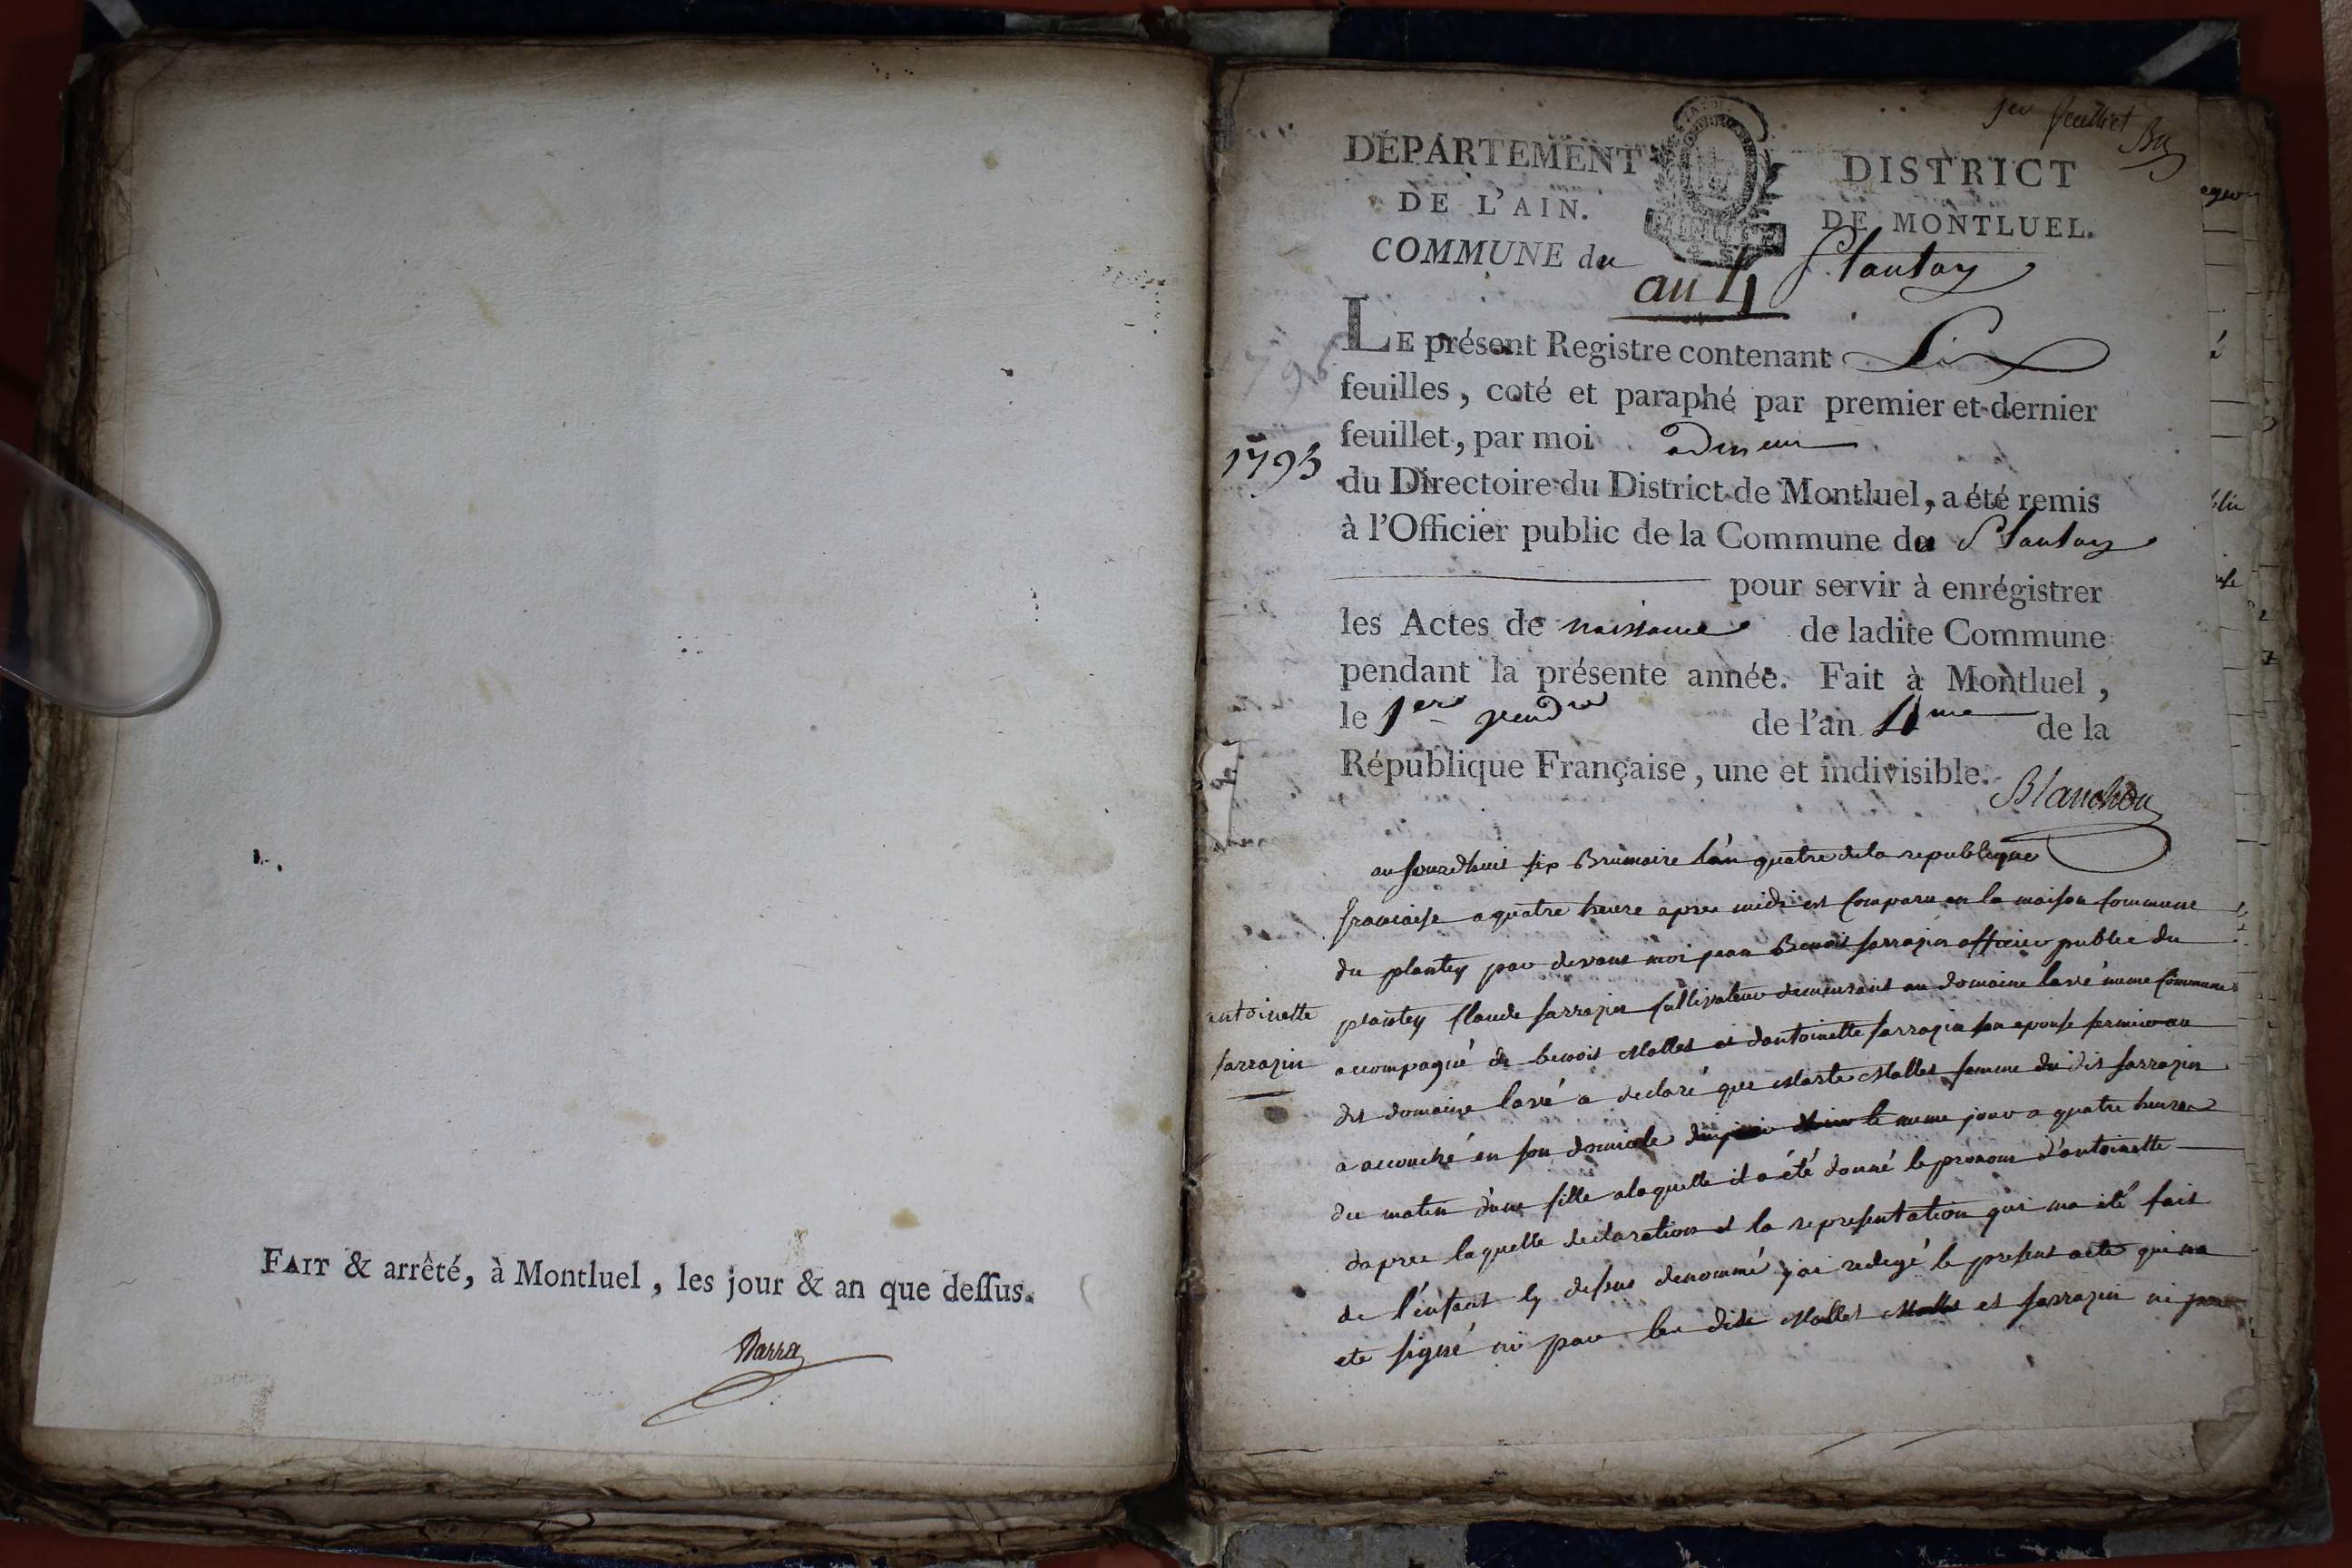 FAIT & arrêté, à Montluel, les jour & an que deſſus.
Barra
1er feuillet
DÉPARTEMENT
DE L'AIN.
DISTRICT
DE MONTLUEL.
COMMUNE du Plantay
an 4
LE présent Registre contenant Six
feuilles, coté et paraphé par premier et dernier
feuillet, par moi
1795
du Directoire du District de Montluel, a été remis
à l'Officier public de la Commune du Plantay
pour servir à enrégistrer
les Actes de naissance de ladite Commune
pendant la présente année. Fait à Montluel,
le 1er vend re de l'an 4me de la
République Française, une et indivisible.
Blanchon
aujourdhuit six Brumaire l'an quatre de la republique
francaise a quatre heure apres midi est comparu en la maison commune
du plantey par devant moi jean Benoit sarrazin officier public du
plantey Claude sarrazin cultivateur demeurant au domaine lavé meme commune
antoinette
sarrazin
accompagné de benoit Mallet et dantoinette sarrazin son epouse fermier au
dit domaine lavé a declaré que Marte Mallet femme du dit sarrazin
a accouché en son domicile le meme jour a quatre heures
du matin d'une fille alaquelle il a été donné le pronom d'antoinette
dapres laquelle declaration et la representation qui ma été fait
de l'enfant cy dessus denommé j'ai redigé le present acte qui na
ete signé ni par les dits Mallet et sarrazin ni par